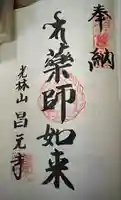 奉納
薬師如来
光林山 昌元寺